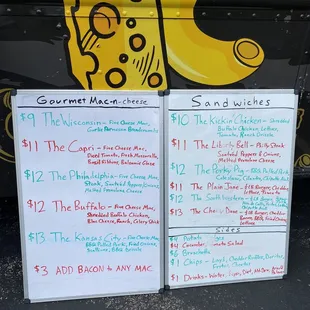 Gourmet Mac-n-cheese
$9 The Wisconsin - Five Cheese Mac,
Garlic Parmesan Breadcrumbs
$11 The Capri - Five Cheese Mac,
Diced Tomato, Fresh Mozzarella,
Basil Ribbons, Balsamic Glaze
$12 The Philadelphia - Five Cheese Mac,
Steak, Sautéed Peppers/Onions,
Melted Provolone Cheese
$12 The Buffalo - Five Cheese Mac,
Shredded Buffalo Chicken,
Bleu Cheese, Ranch, Celery Stick
$13 The Kansas City - Five Cheese Mac,
BBQ Pulled Pork, Fried Onions,
BBQ Drizzle
$3 ADD BACON to ANY MAC
Sandwiches
$10 The Kickin' Chicken - Shredded
Buffalo Chicken, Lettuce,
Tomato, Ranch Drizzle
$11 The Liberty Bell - Philly Steak,
Sautéed Peppers & Onions,
Melted Provolone Cheese
$12 The Porky Pig - BBQ Pulled Pork,
$11 The Plain Jane - Burger, Cheddar,
Lettuce, Tomato,
$12 The Southwestern - Burger,
$13 The Burger,
Sides
Potato
$4 Cucumber Tomato Salad
$6
$1 Chips -
$1 Drinks - Water,